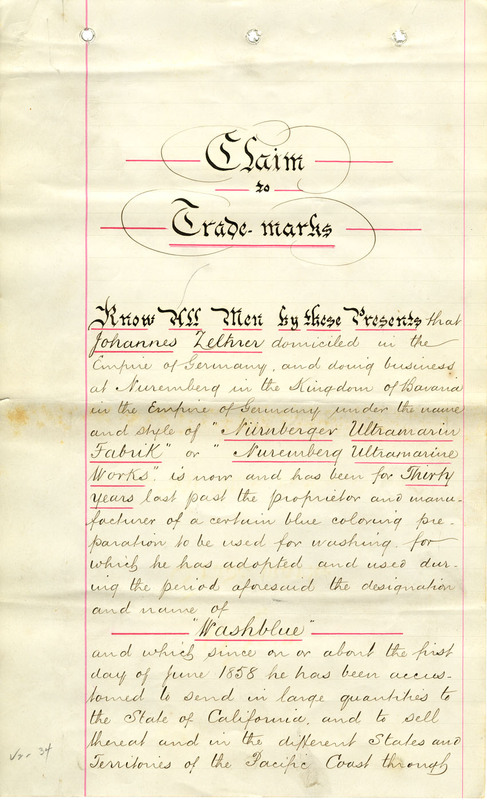 Claim
to
Trade-marks
Know All Men by these Presents that
Johannes Zeltner domiciled in the
Empire of Germany, and doing business
at Nuremberg in the Kingdom of Bavaria
in the Empire of Germany under the name
and style of "Nürnberger Ultramarin
Fabrik" or "Nuremberg Ultramarine
Works", is now and has been for Thirty
Years last past the proprietor and manu-
facturer of a certain blue coloring pre-
paration to be used for washing, for
which he has adopted and used dur-
ing the period aforesaid the designation
and name of
"Washblue"
and which since on or about the first
day of June 1858 he has been accus-
tomed to send in large quantities to
the State of California, and to sell
thereat and in the different States and
Territories of the Pacific Coast through